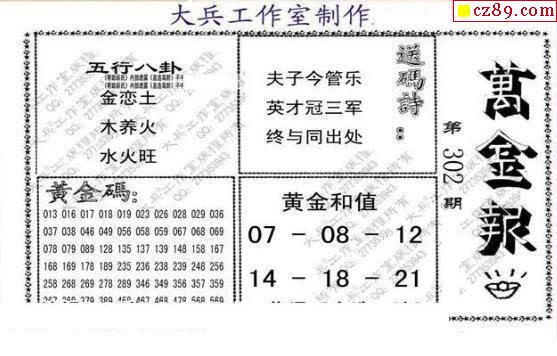 大兵工作室制作
cz89.com
五行八卦
金恋土
木养火
水火旺
夫子今管乐
英才冠三军
终与同出处
送碼詩：
萬金報
第302期
黄金碼：
013 016 017 018 019 023 026 028 029 036
037 038 046 049 059 067 068 069 076 077
078 079 089 128 135 139 147 148 158 167
168 169 179 189 235 236 238 239 246 256
258 268 269 278 289 346 349 356 359 357
267 269 379 389 459 467 468 478 568 569
黄金和值
07 － 08 － 12
14 － 18 － 21